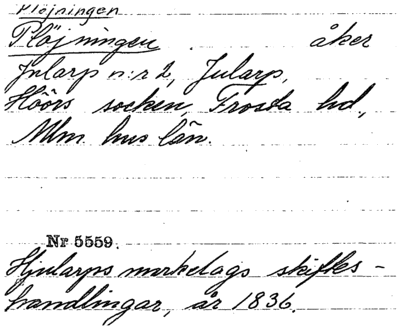 Plöjningen
Plöjningen. åker
Jularp n:r 2, Jularp,
Höörs socken, Frosta hd,
Mlm hus län.
Nr 5559.
Hjularps mrkelags skiftes-
handlingar, år 1836.